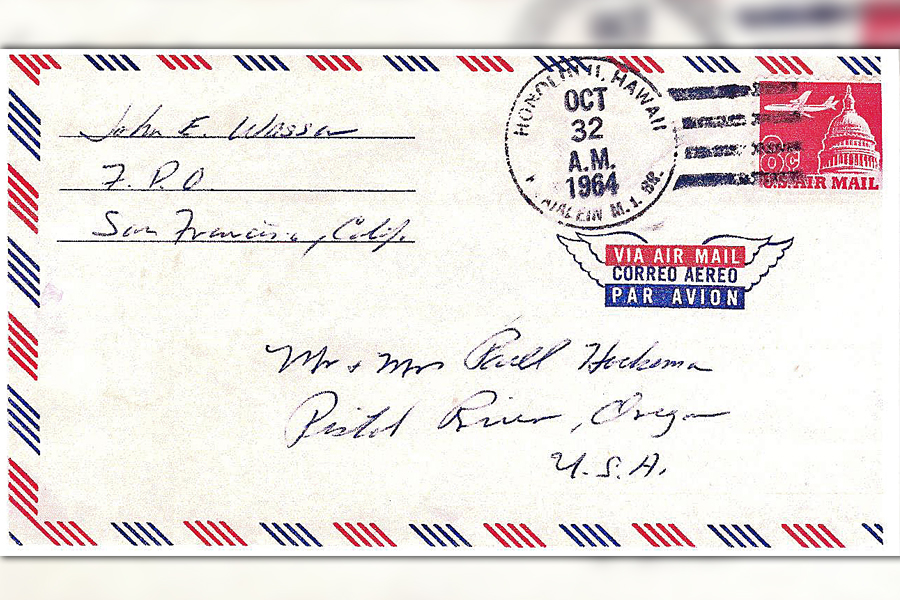 John E. Wasson
F. P. O.
San Francisco, Calif.
HONOLULU, HAWAII
OCT
32
A.M.
1964
M.I. BR.
8¢
U.S. AIR MAIL
VIA AIR MAIL
CORREO AEREO
PAR AVION
Mr & Mrs Hockema
Pistol River, Oregon
U.S.A.